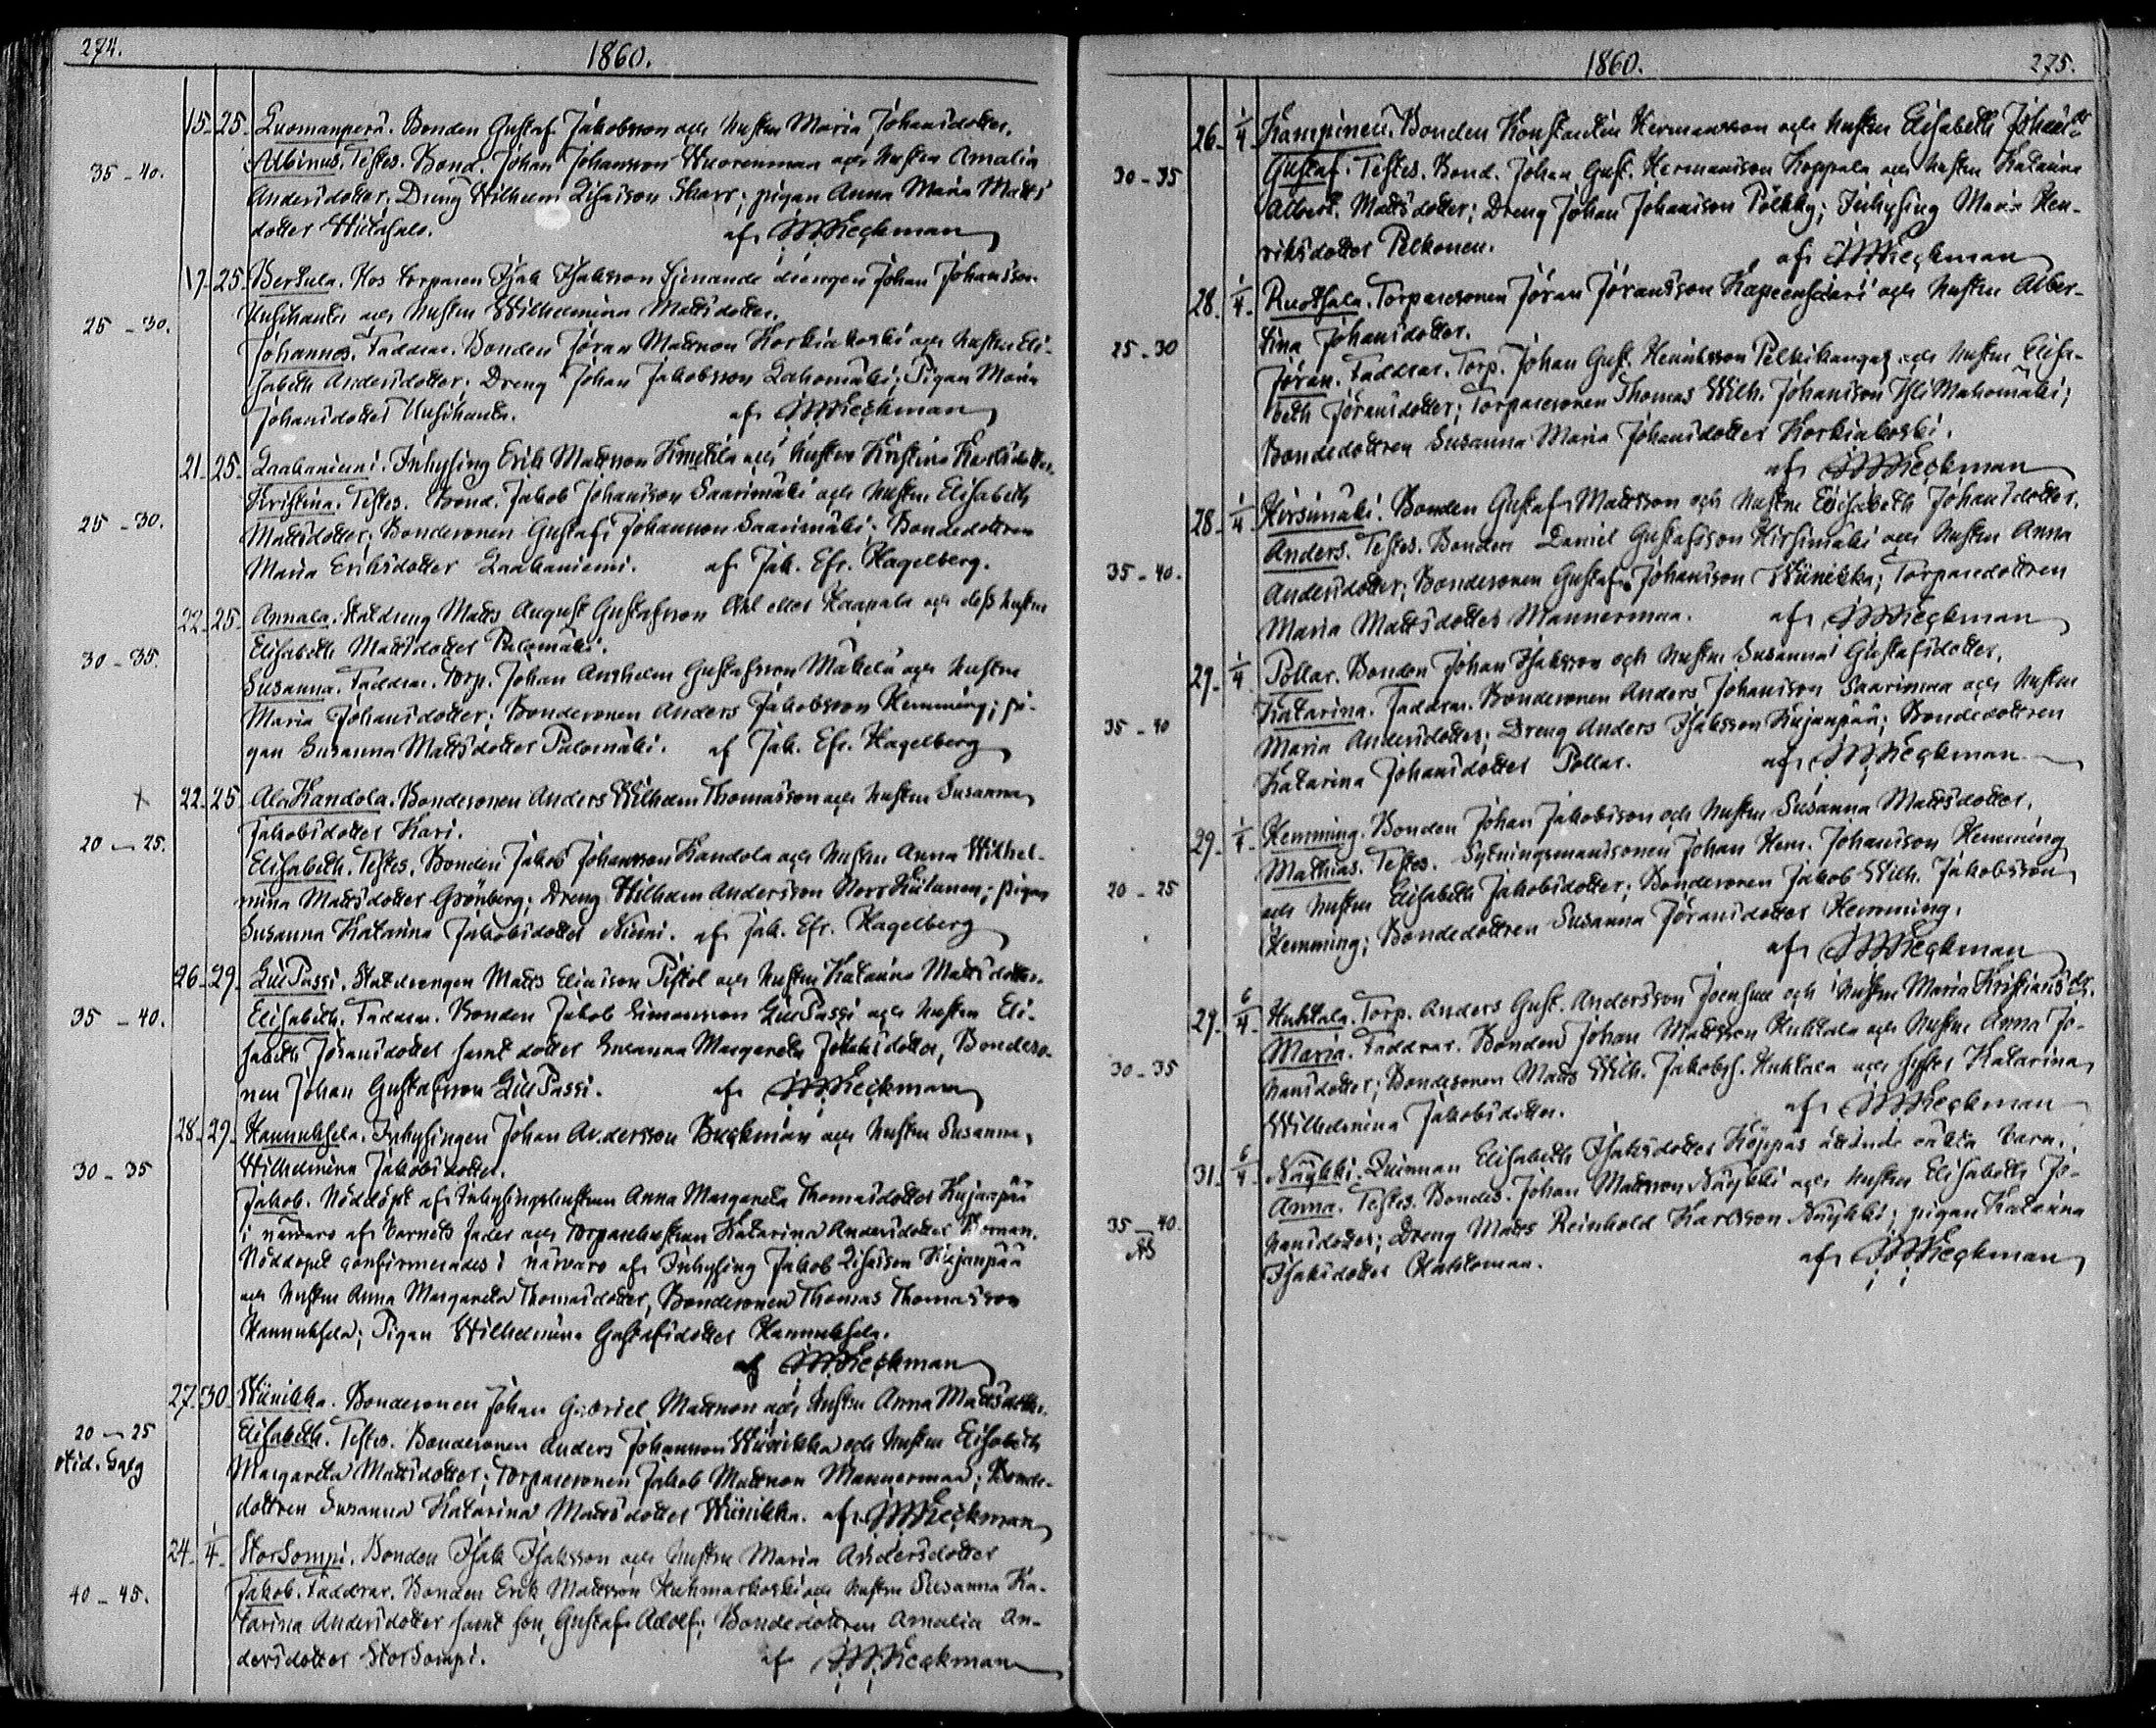 274.
1860.
15. 25. Luomanperä. Bonden Gustaf Jakobsson och hustru Maria Johansdotter.
35-40. Albinus. Testes. Bond. Johan Johansson Wuorenmaa och hustru Amalia
Andersdotter. Dreng Wilhelm Lisasson Skarr; pigan Anna Maria Matts
dotter Wiitasalo. af MWieckman
17. 25. Bertula. Hos torparen Isak Isaksson tjenande drengen Johan Johansson
25-30. Uusihanta och hustru Wilhelmina Mattsdotter.
Johannes. Faddrar. Bonden Jöran Mattsson Korkiakoski och hustru Eli-
sabeth Andersdotter. Dreng Johan Jakobsson Lahomäki; Pigan Maria
Johansdotter Uusihanta. af MWieckman
21. 25. Laakaniemi. Inhysing Erik Mattsson Knuttila och hustru Kristina Karlsdotter.
25-30. Kristina. Testes. Bond. Jakob Johansson Saarimäki och hustru Elisabeth
Mattsdotter; Bondesonen Gustaf Johansson Saarimäki; Bondedottren
Maria Eriksdotter Laakaniemi. af Jak. Efr. Hagelberg.
22. 25. Annala. Statdreng Matts August Gustafsson Ahl eller Haapala och dess hustru
30-35. Elisabeth Mattsdotter Palomäki.
Susanna. Faddrar. Torp. Johan Anshelm Gustafsson Mäkelä och hustru
Maria Johansdotter; Bondesonen Anders Jakobsson Hemming; pi-
gan Susanna Mattsdotter Palomäki. af Jak. Efr. Hagelberg
x 22. 25. Ala Kandola. Bondesonen Anders Wilhelm Thomasson och hustru Susanna
Jakobsdotter Kari.
20-25. Elisabeth. Testes. Bonden Jakob Johansson Kandola och hustru Anna Wilhel-
mina Mattsdotter Grönberg; Dreng Wilhelm Andersson Norr Kiitanen; pigan
Susanna Katarina Jakobsdotter Niemi. af Jak. Efr. Hagelberg
26. 29. Lill Passi. Statdrengen Matts Eliasson Pistol och hustru Katarina Mattsdotter.
35-40. Elisabeth. Faddrar. Bonden Jakob Simonsson Lill Passi och hustru Eli-
sabeth Jöransdotter samt dotter Susanna Margareta Jakobsdotter, Bondeso-
nen Johan Gustafsson Lill Passi. af MWieckman
28. 29. Hannuksela. Inhysingen Johan Andersson Backman och hustru Susanna
30-35 Wilhelmina Jakobsdotter.
Jakob. Nöddöpt af Inhysingshustrun Anna Margareta Thomasdotter Kujanpää
i närvaro af barnets fader och Torparehustrun Katarina Andersdotter Boman.
Nöddopet confirmerades i närvaro af Inhysing Jakob Lisasson Kujanpää
och hustru Anna Margareta Thomasdotter, Bondesonen Thomas Thomasson
Hannuksela; Pigan Wilhelmina Gustafsdotter Hannuksela.
af MWieckman
27. 30. Wiinikka. Bondesonen Johan Gabriel Mattsson och hustru Anna Mattsdotter.
20-25 Elisabeth. Testes. Bondesonen Anders Johansson Wiinikka och hustru Elisabeth
Margareta Mattsdotter; Torparesonen Jakob Mattsson Mannermaa; Bonde-
dottren Susanna Katarina Mattsdotter Wiinikka. af MWieckman
24. 1/4. Stor Sompi. Bonden Isak Isaksson och hustru Maria Andersdotter
40-45. Jakob. Faddrar. Bonden Erik Mattsson Huhmarkoski och hustru Susanna Ka-
tarina Andersdotter samt son, Gustaf Adolf; Bondedottren Amalia An-
dersdotter Stor Sompi. af MWieckman
1860.
275.
26. 1/4. Kampinen. Bonden Konstantin Hermansson och hustru Elisabeth Johansdr
30-35 Gustaf. Testes. Bond. Johan Gust. Hermansson Koppala och hustru Katarina
Albert. Mattsdotter; Dreng Johan Johansson Pölkky; Inhysing Maria Hen-
riksdotter Pelkonen. af MWieckman
28. 1/4. Ruotsala. Torparesonen Jöran Jöransson Haapeensaari och hustru Alber-
25-30 tina Johansdotter.
Jöran. Faddrar. Torp. Johan Gust. Henriksson Pelkikangas och hustru Elisa-
beth Jöransdotter; Torparesonen Thomas Wilh. Johansson Yli Mahomäki;
Bondedottren Susanna Maria Johansdotter Korkiakoski.
af MWieckman
28. 1/4. Hirsimäki. Bonden Gustaf Mattsson och hustru Elisabeth Johansdotter.
35-40. Anders. Testes. Bonden Daniel Gustafsson Hirsimäki och hustru Anna
Andersdotter; Bondesonen Gustaf Johansson Wiinikka; Torparedottren
Maria Mattsdotter Mannermaa. af MWieckman
29. 1/4. Pollar. Bonden Johan Isaksson och hustru Susanna Gustafsdotter.
35-40 Katarina. Faddrar. Bondesonen Anders Johansson Saarimaa och hustru
Maria Andersdotter; Dreng Anders Isaksson Kujanpää; Bondedottren
Katarina Johansdotter Pollar. af MWieckman
29. 1/4. Hemming. Bonden Johan Jakobsson och hustru Susanna Mattsdotter.
20-25 Mathias. Testes. Sytningsmanssonen Johan Herm. Johansson Hemming
och hustru Elisabeth Jakobsdotter; Bondesonen Jakob Wilh. Jakobsson
Hemming; Bondedottren Susanna Jöransdotter Hemming.
af MWieckman
29. 6/4. Huhtala. Torp. Anders Gust. Andersson Joensuu och hustru Maria Kristiansdr.
30-35 Maria. Faddrar. Bonden Johan Mattsson Huhtala och hustru Anna Jo-
hansdotter; Bondesonen Matts Wilh. Jakobss. Huhtala och syster Katarina
Wilhelmina Jakobsdotter. af MWieckman
31. 6/4. Näykki. Quinnan Elisabeth Isaksdotter Köppäs åttande oäkta barn.
35-40. Anna. Testes. Bondes. Johan Mattsson Näykki och hustru Elisabeth Jo-
hansdotter; Dreng Matts Reinhold Karlsson Näykki; pigan Katarina
Isaksdotter Hahtomaa. af MWieckman